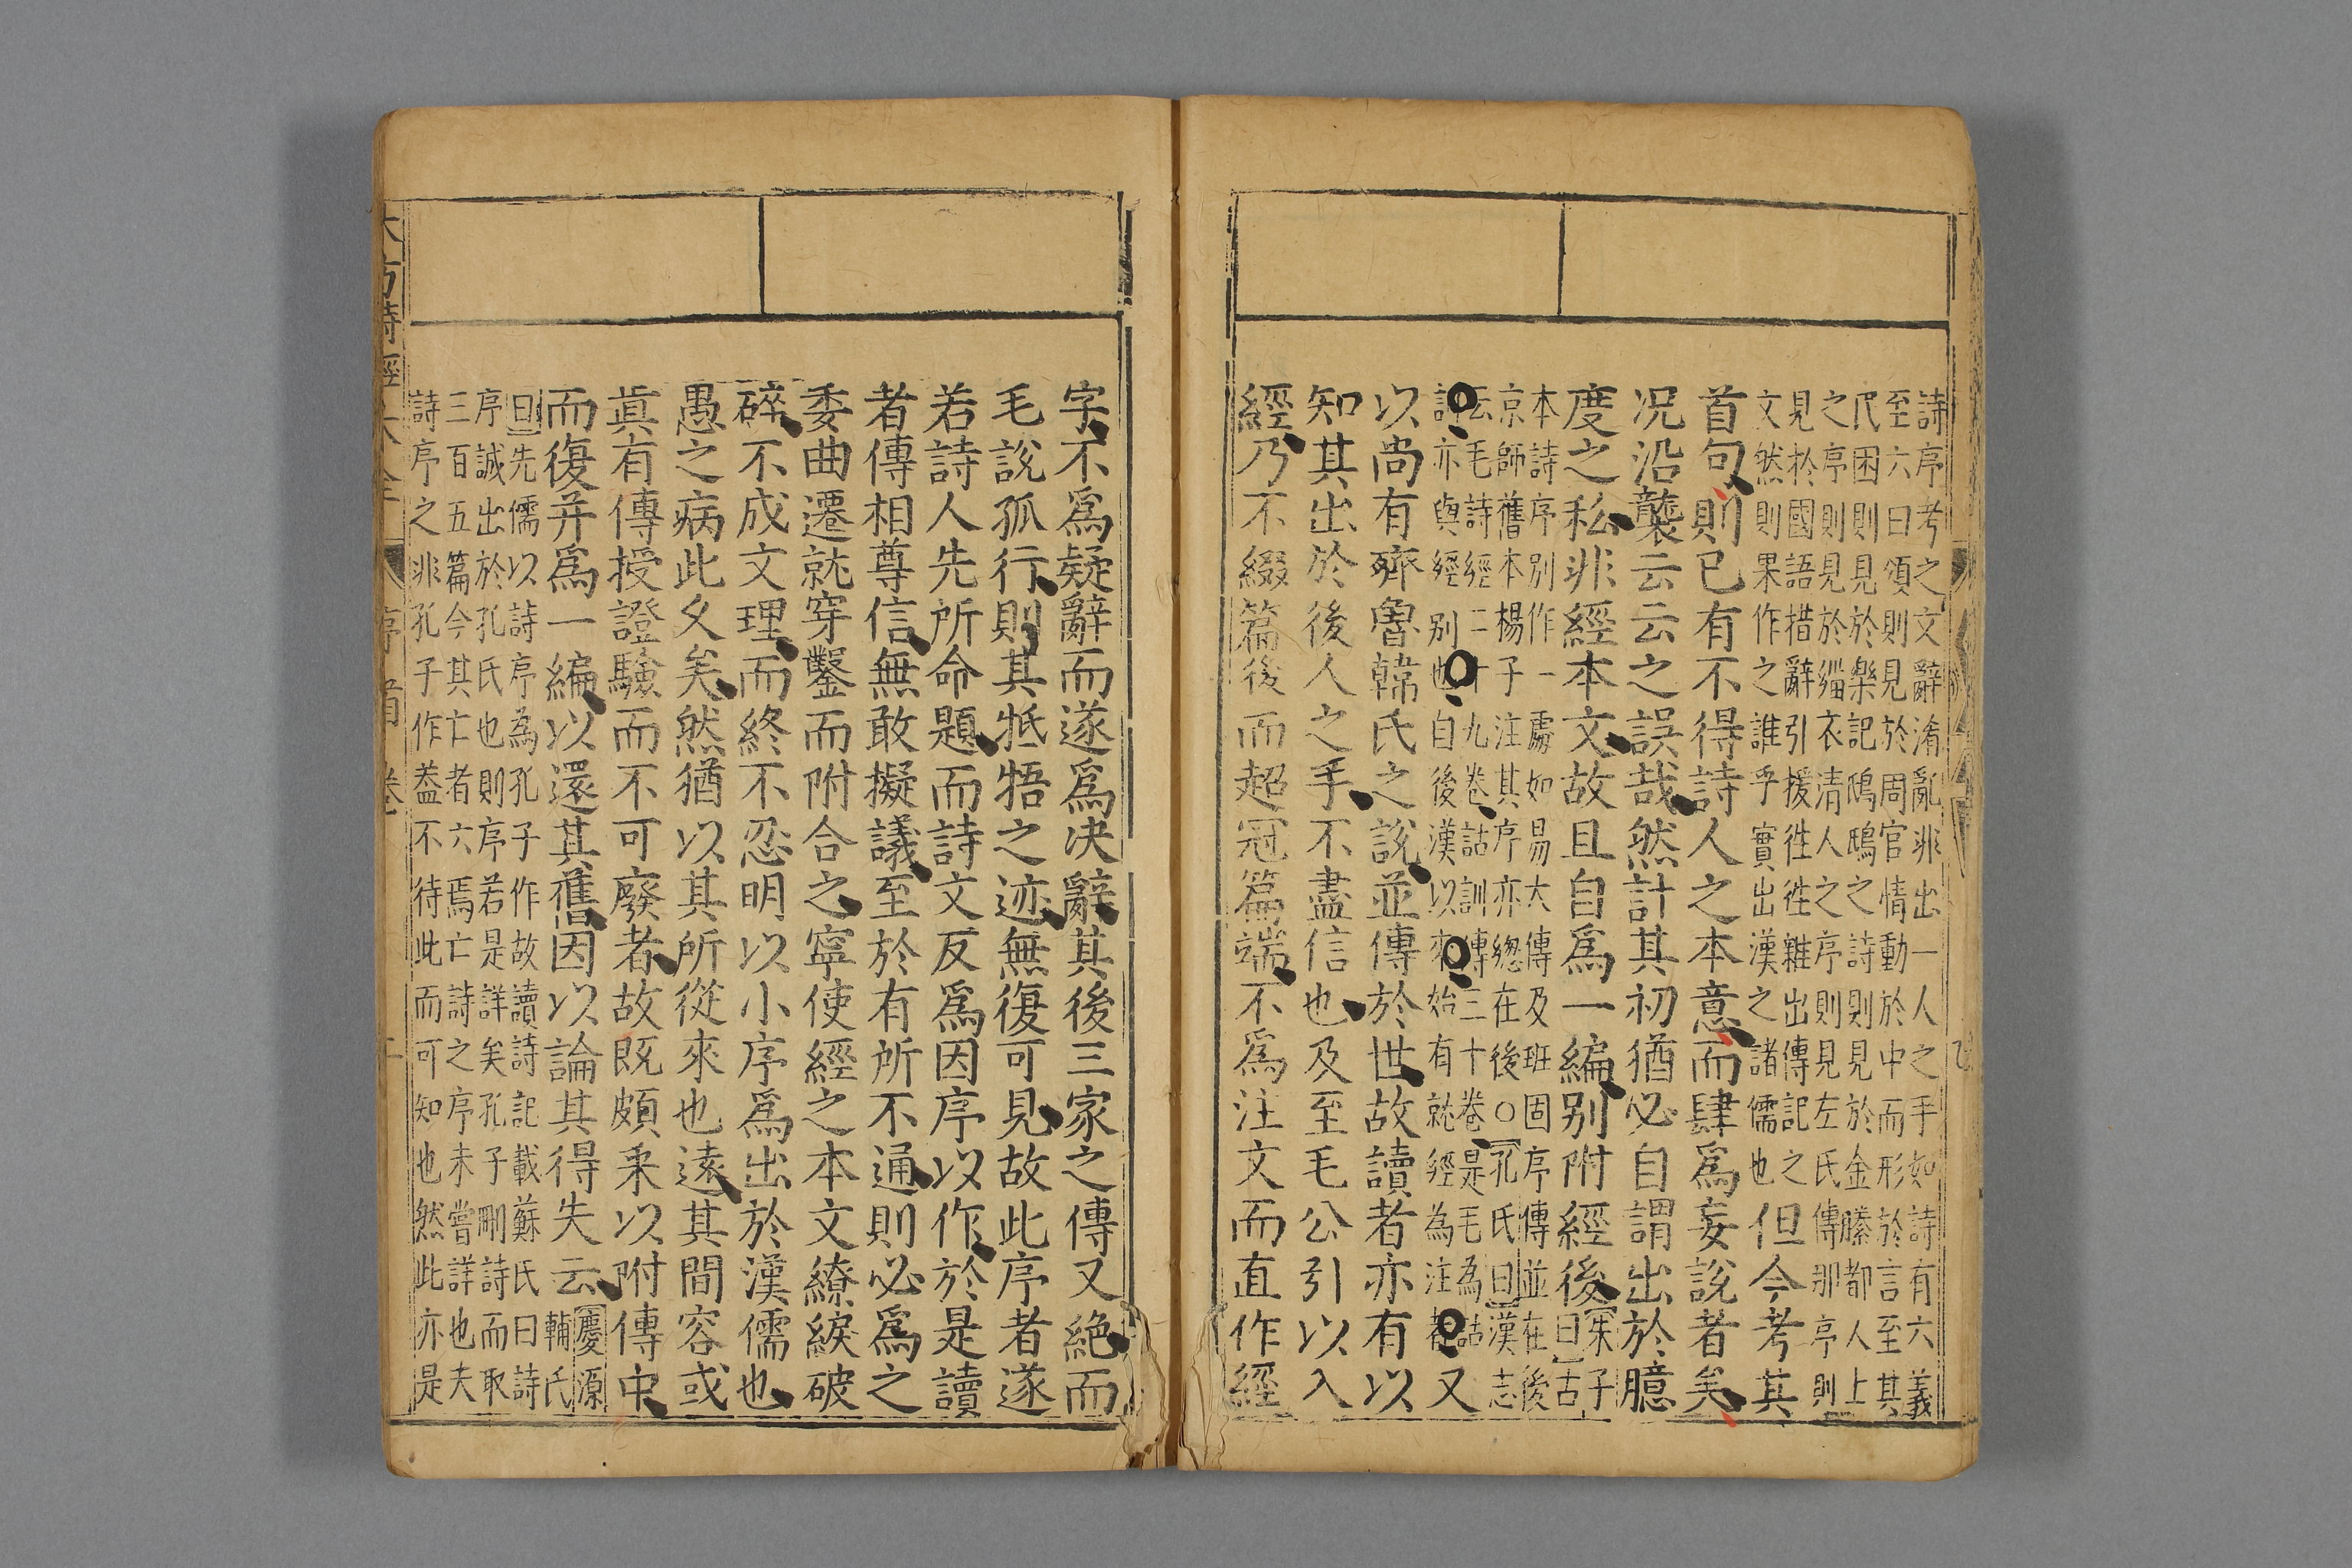 詩序考之文辭淆亂非出一人之手如詩有六義
至六曰頌則見於周官情動於中而形於言至其
民困則見於樂記鴟鴞之詩則見於金縢都人上
之序則見於緇衣清人之序則見左氏傳那序則
見於國語措辭引援徃徃雜出傳記之
文然則果作之誰乎實出漢之諸儒也
但今考其
首句則已有不得詩人之本意而肆爲妄說者矣
况沿襲云云之誤哉然計其初猶必自謂出於臆
度之私非經本文故且自爲一編别附經後
朱子
曰古
本詩序別作一處如易大傳及班固序傳並在後
京師舊本楊子注其序亦緫在後○孔氏曰漢志
云毛詩經二十九卷詁訓傳三十卷是毛為詁
訓亦與經别也自後漢以來始有就經為注者
又
以尚有齊魯韓氏之說並傳於世故讀者亦有以
知其出於後人之手不盡信也及至毛公引以入
經乃不綴篇後而超冠篇端不爲注文而直作經
字不爲疑辭而遂爲决辭其後三家之傳又絕而
毛說孤行則其牴牾之迹無復可見故此序者遂
若詩人先所命題而詩文反爲因序以作於是讀
者傳相尊信無敢擬議至於有所不通則必爲之
委曲遷就穿鑿而附合之寧使經之本文繚綟破
碎不成文理而終不忍明以小序爲出於漢儒也
愚之病此久矣然猶以其所從來也遠其間容或
眞有傳授證驗而不可廢者故既頗采以附傳中
而復并爲一編以還其舊因以論其得失云
慶源
輔氏
曰先儒以詩序為孔子作故讀詩記載蘇氏曰詩
序誠出於孔氏也則序若是詳矣孔子刪詩而取
三百五篇今其亡者六焉亡詩之序未嘗詳也夫
詩序之非孔子作葢不待此而可知也然此亦是